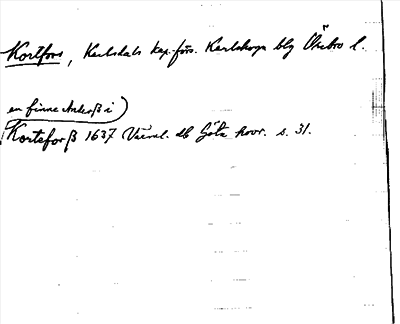 Kortfors, Karlsdals kap.förs. Karlskoga blg Örebro l.
en finne Anderß i
Korteforß 1637 Värml. db Göta hovr. s. 31.